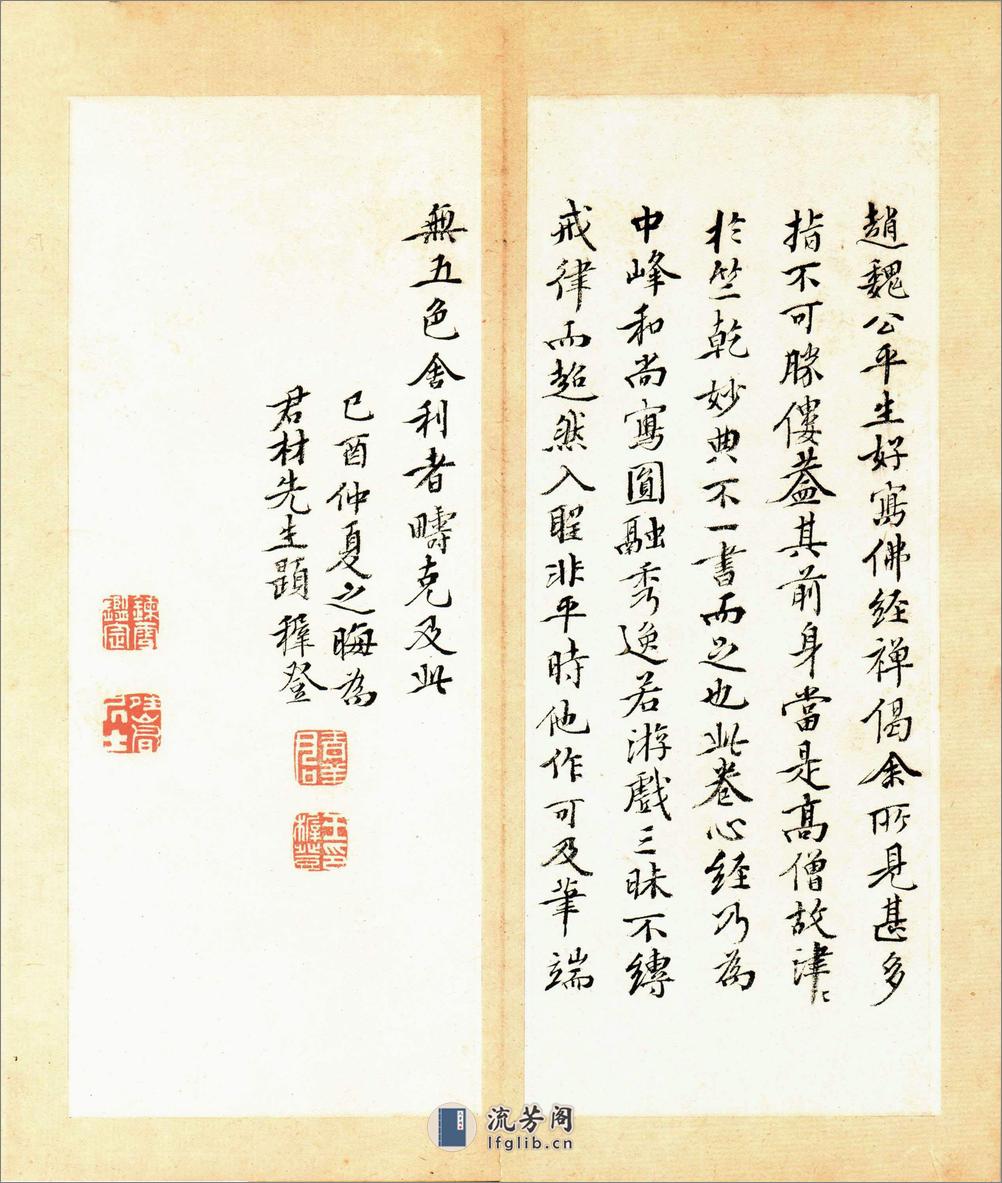 趙魏公平生好寫佛經禅偈余所見甚多
指不可勝僂葢其前身當是高僧故津〻
於竺乾妙典不一書而足也此卷心經乃為
中峰和尚寫圓融秀逸若游戲三昧不縛
戒律而超然入聖非平時他作可及筆端
無五色舍利者疇克及此
已酉仲夏之晦為
君材先生題穉登
青羊
君
王穉登印
鑑定
流芳阁
lfglib.cn